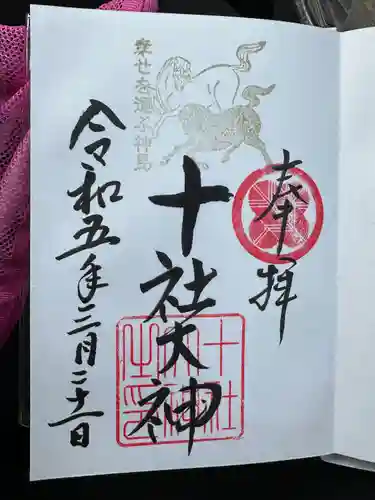 奉拝
幸せを運ぶ神馬
十社大神
十社大神之印
令和五年三月二十一日